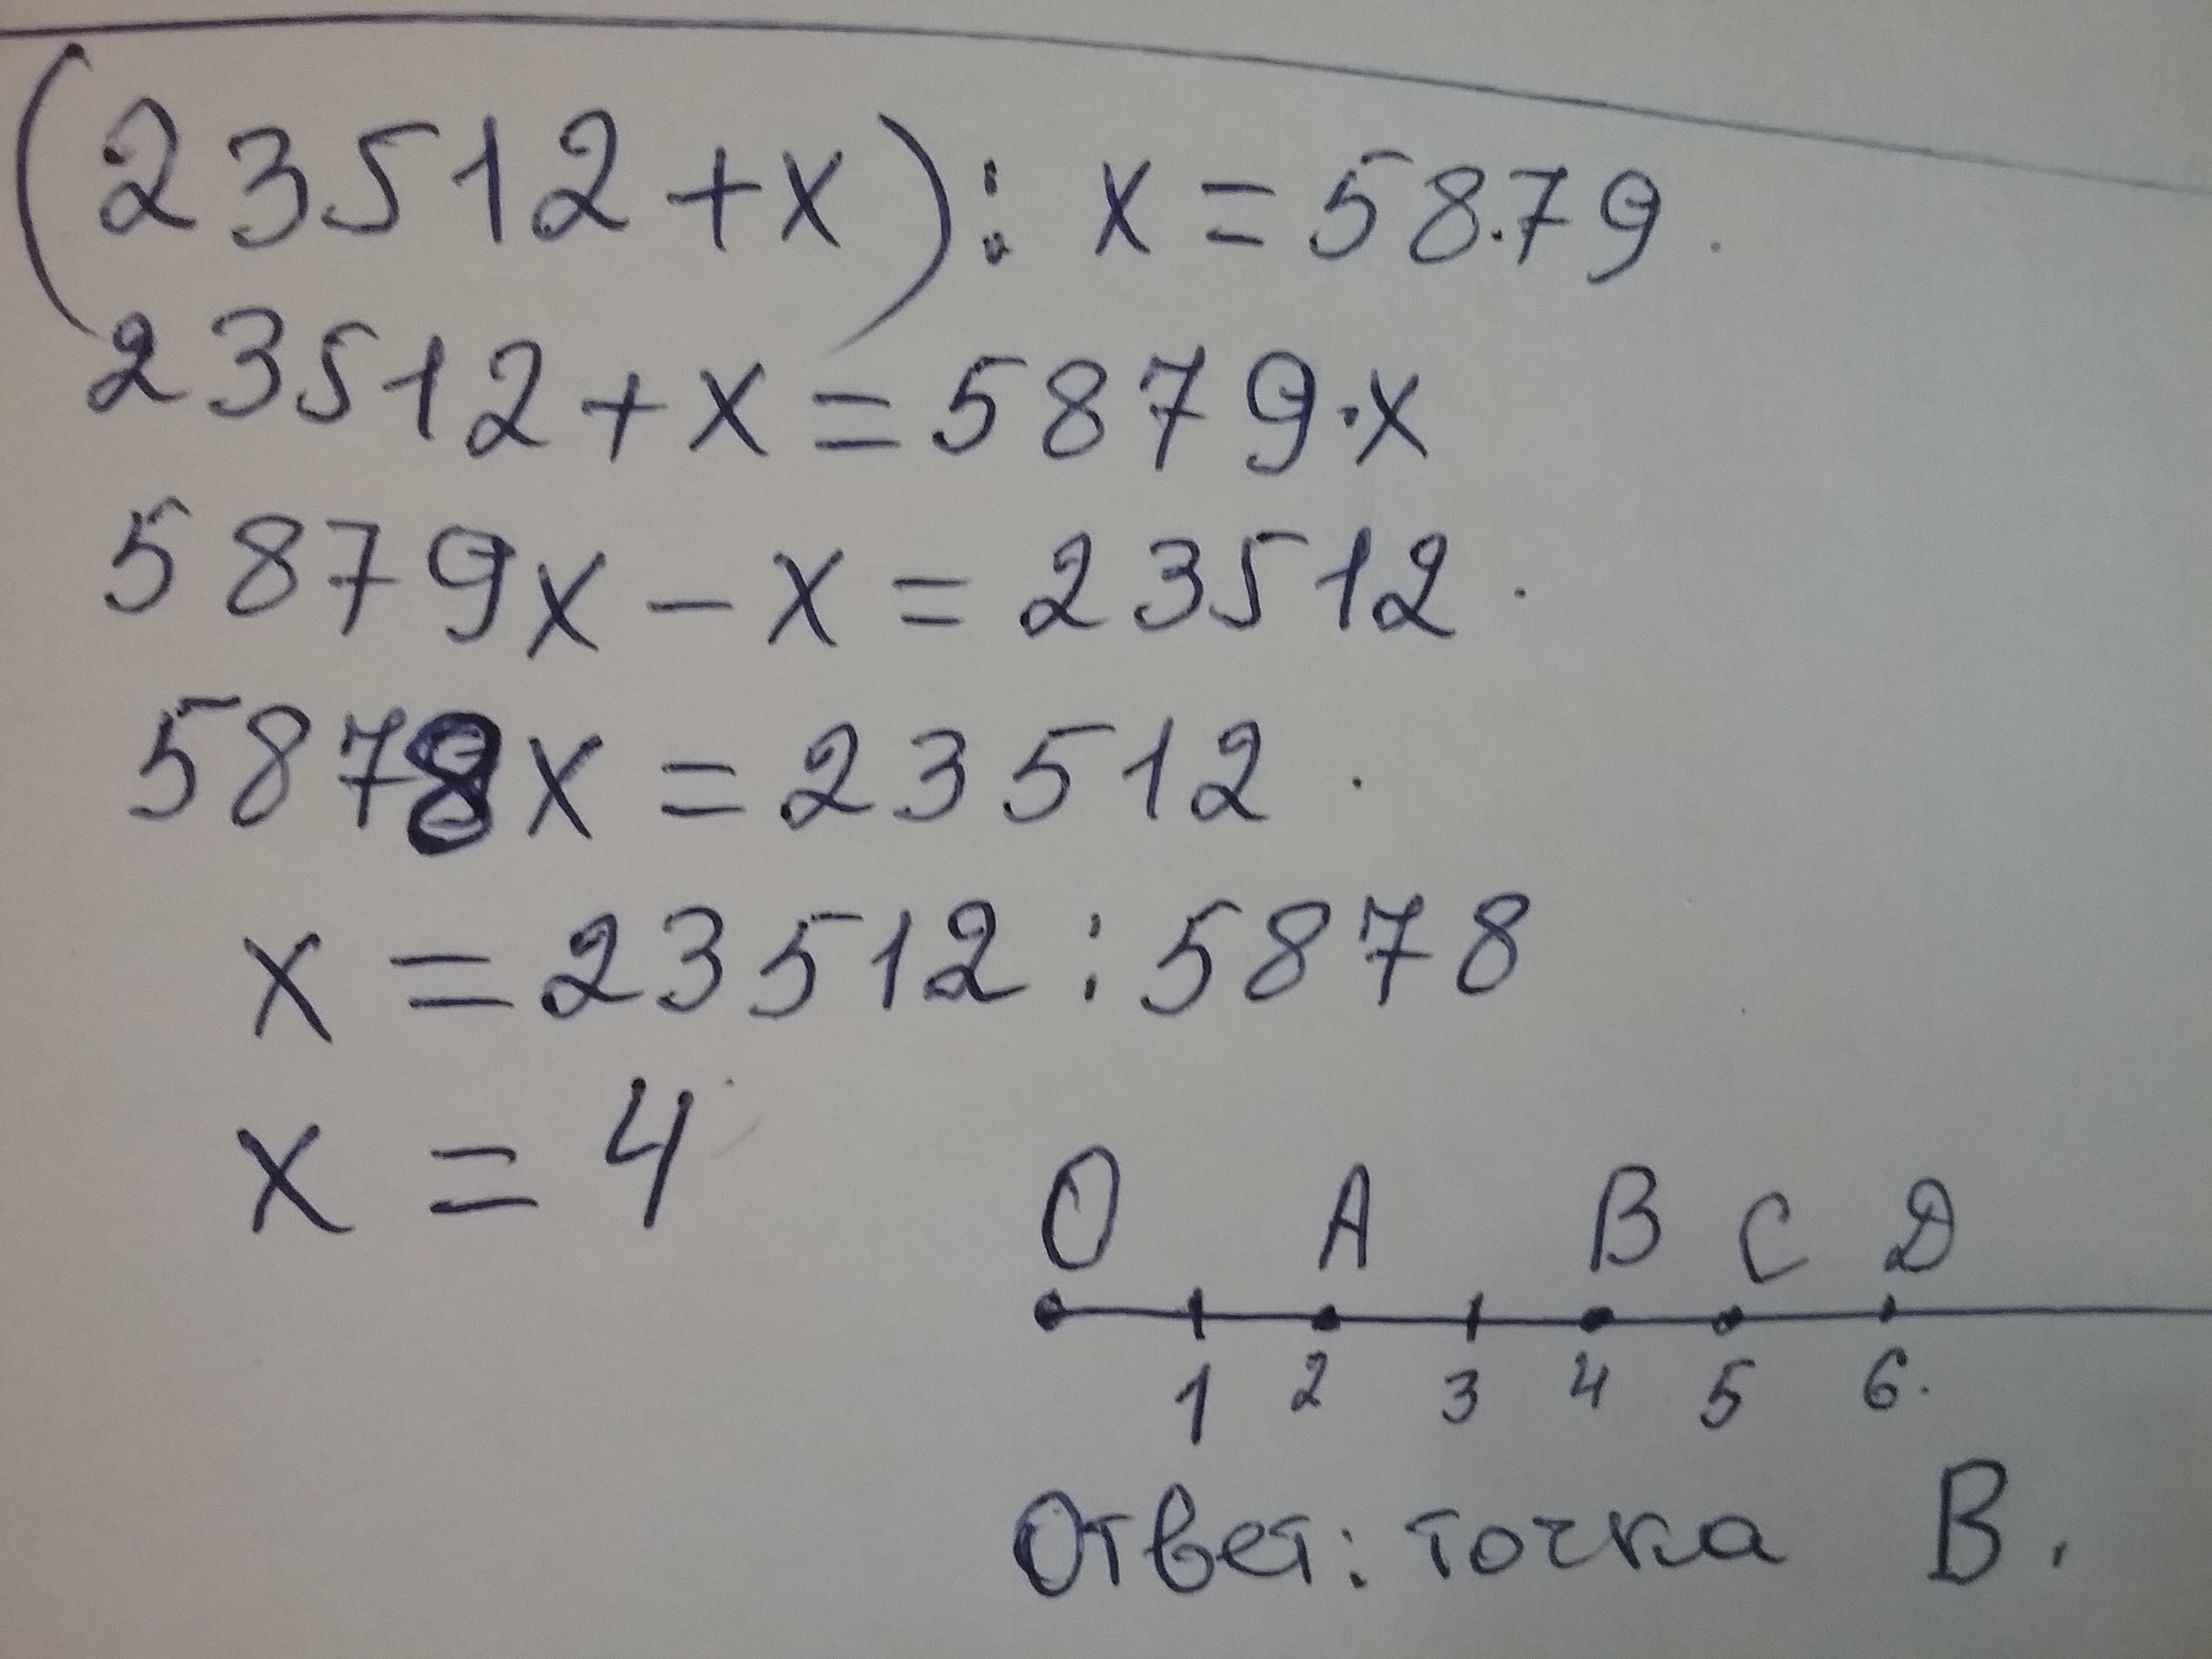 (23512+x): x=5879
23512+x=5879·x
5879x-x=23512
5878x=23512
x=23512:5878
x=4
O A B C D
1 2 3 4 5 6
Ответ: точка B.